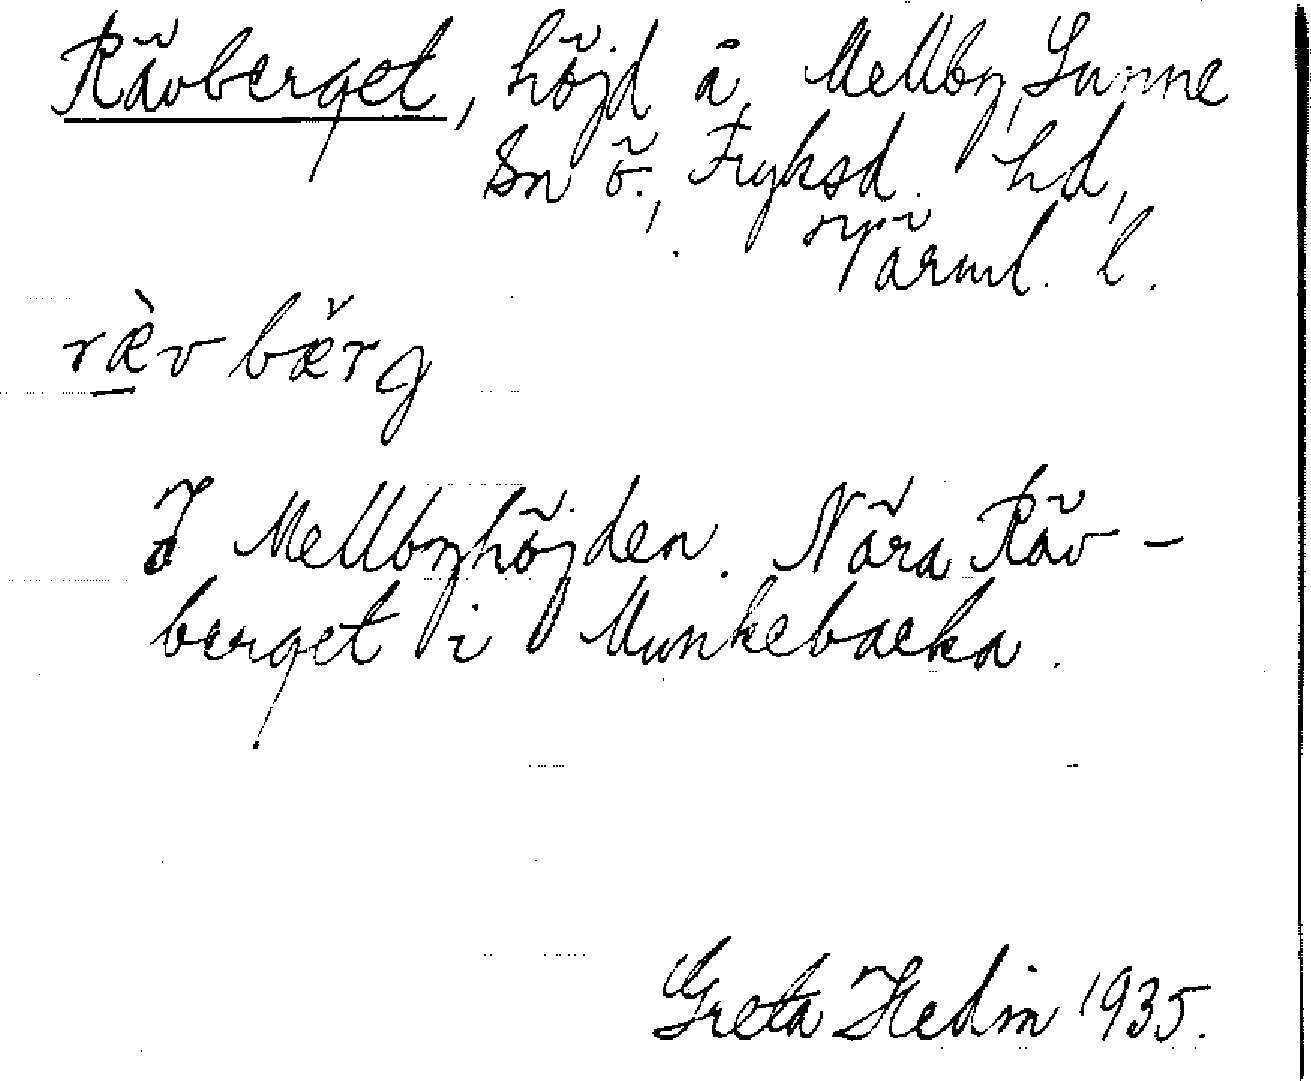 Rävberget, höjd å Mellby, Sunne
Sn ö., Fryksd. hd,
Värml. l.
ræ̀v bæ̌rg
I Mellbyhöjden. Nära Räv-
berget i Munkebacka.
Greta Hedin 1935.